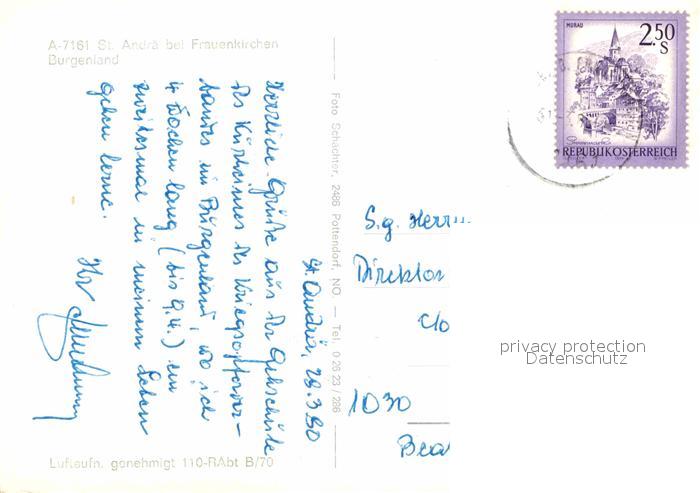 A-7161 St. Andrä bei Frauenkirchen
Burgenland
St. Andrä, 28.3.80
Herzliche Grüße aus der Gehschule
des Kurheimes des Kriegsopferver-
bandes im Burgenland, wo ich
4 Wochen lang (bis 9.4.) ein
zweitesmal in meinem Leben
gehen lerne.
Ihr
Luftaufn. genehmigt 110-RAbt B/70
Foto Schächter, 2486 Pottendorf, NÖ. — Tel. 0 26 23 / 286
MURAU
2.50
S
REPUBLIK ÖSTERREICH
S.g. Herrn
Direktor
c/o
privacy protection
Datenschutz
1030